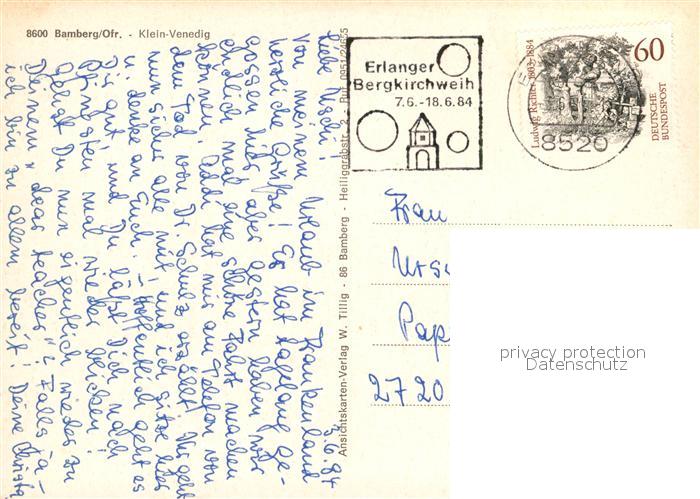 8600 Bamberg/Ofr. - Klein-Venedig
5.6.84
Liebe Uschi!
Von meinem Urlaub im Frankenland
herzliche Grüße! Es hat tagelang ge-
gossen hier, aber gestern haben wir
endlich mal eine schöne Fahrt machen
können. Addi hat mir am Telefon von
dem Tod von Dr. Schulz erzählt. Nun geht
nun sicher alle mit und ich sitze hier
u. denke an Euch. – Hoffentlich geht es
Dir gut und Du läßt Dich nach
Pfingsten mal wieder blicken!
Gehst Du nun eigentlich wieder zu
Deinem "dear teacher"? Falls ja –
ich bin zu allem bereit! Deine
Ansichtskarten-Verlag W. Tillig - 86 Bamberg - Heiliggrabstr. 2 - Ruf 0951/24655
Erlanger
Bergkirchweih
7.6.-18.6.84
Ludwig Richter 1803-1884
60
DEUTSCHE
BUNDESPOST
8520
Frau
2720
privacy protection
Datenschutz